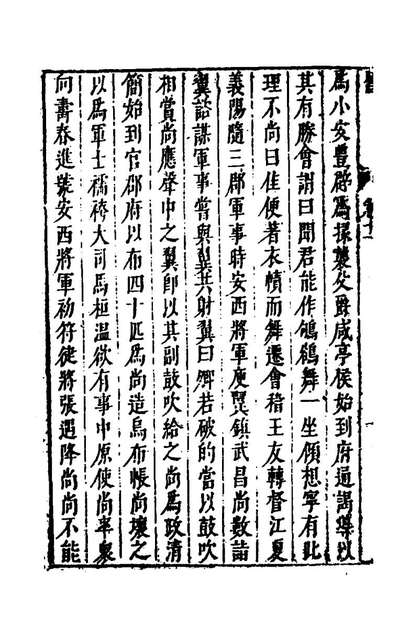 爲小安豐辟爲掾襲父爵咸亭侯始到府通謁導以
其有勝會謂曰聞君能作鴝鵒舞一坐傾想寧有此
理不尚曰佳便著衣幘而舞遷會稽王友轉督江夏
義陽隨三郡軍事時安西將軍庾翼鎮武昌尚數詣
翼諮謀軍事嘗與翼共射翼曰卿若破的當以鼓吹
相賞尚應聲中之翼卽以其副鼓吹給之尚爲政清
簡始到官郡府以布四十匹爲尚造烏布帳尚壞之
以爲軍士襦袴大司馬桓溫欲有事中原使尚率衆
向壽春進號安西將軍初符健將張遇降尚尚不能